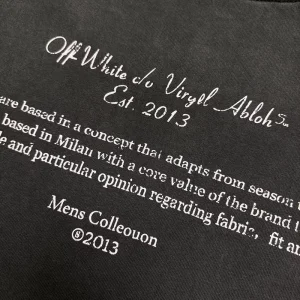 Off White c/o Virgil Abloh™
Est. 2013
are based in a concept that adapts from season t
based in Milan with a core value of the brand t
le and particular opinion regarding fabric, fit an
Mens Colleouon
®2013